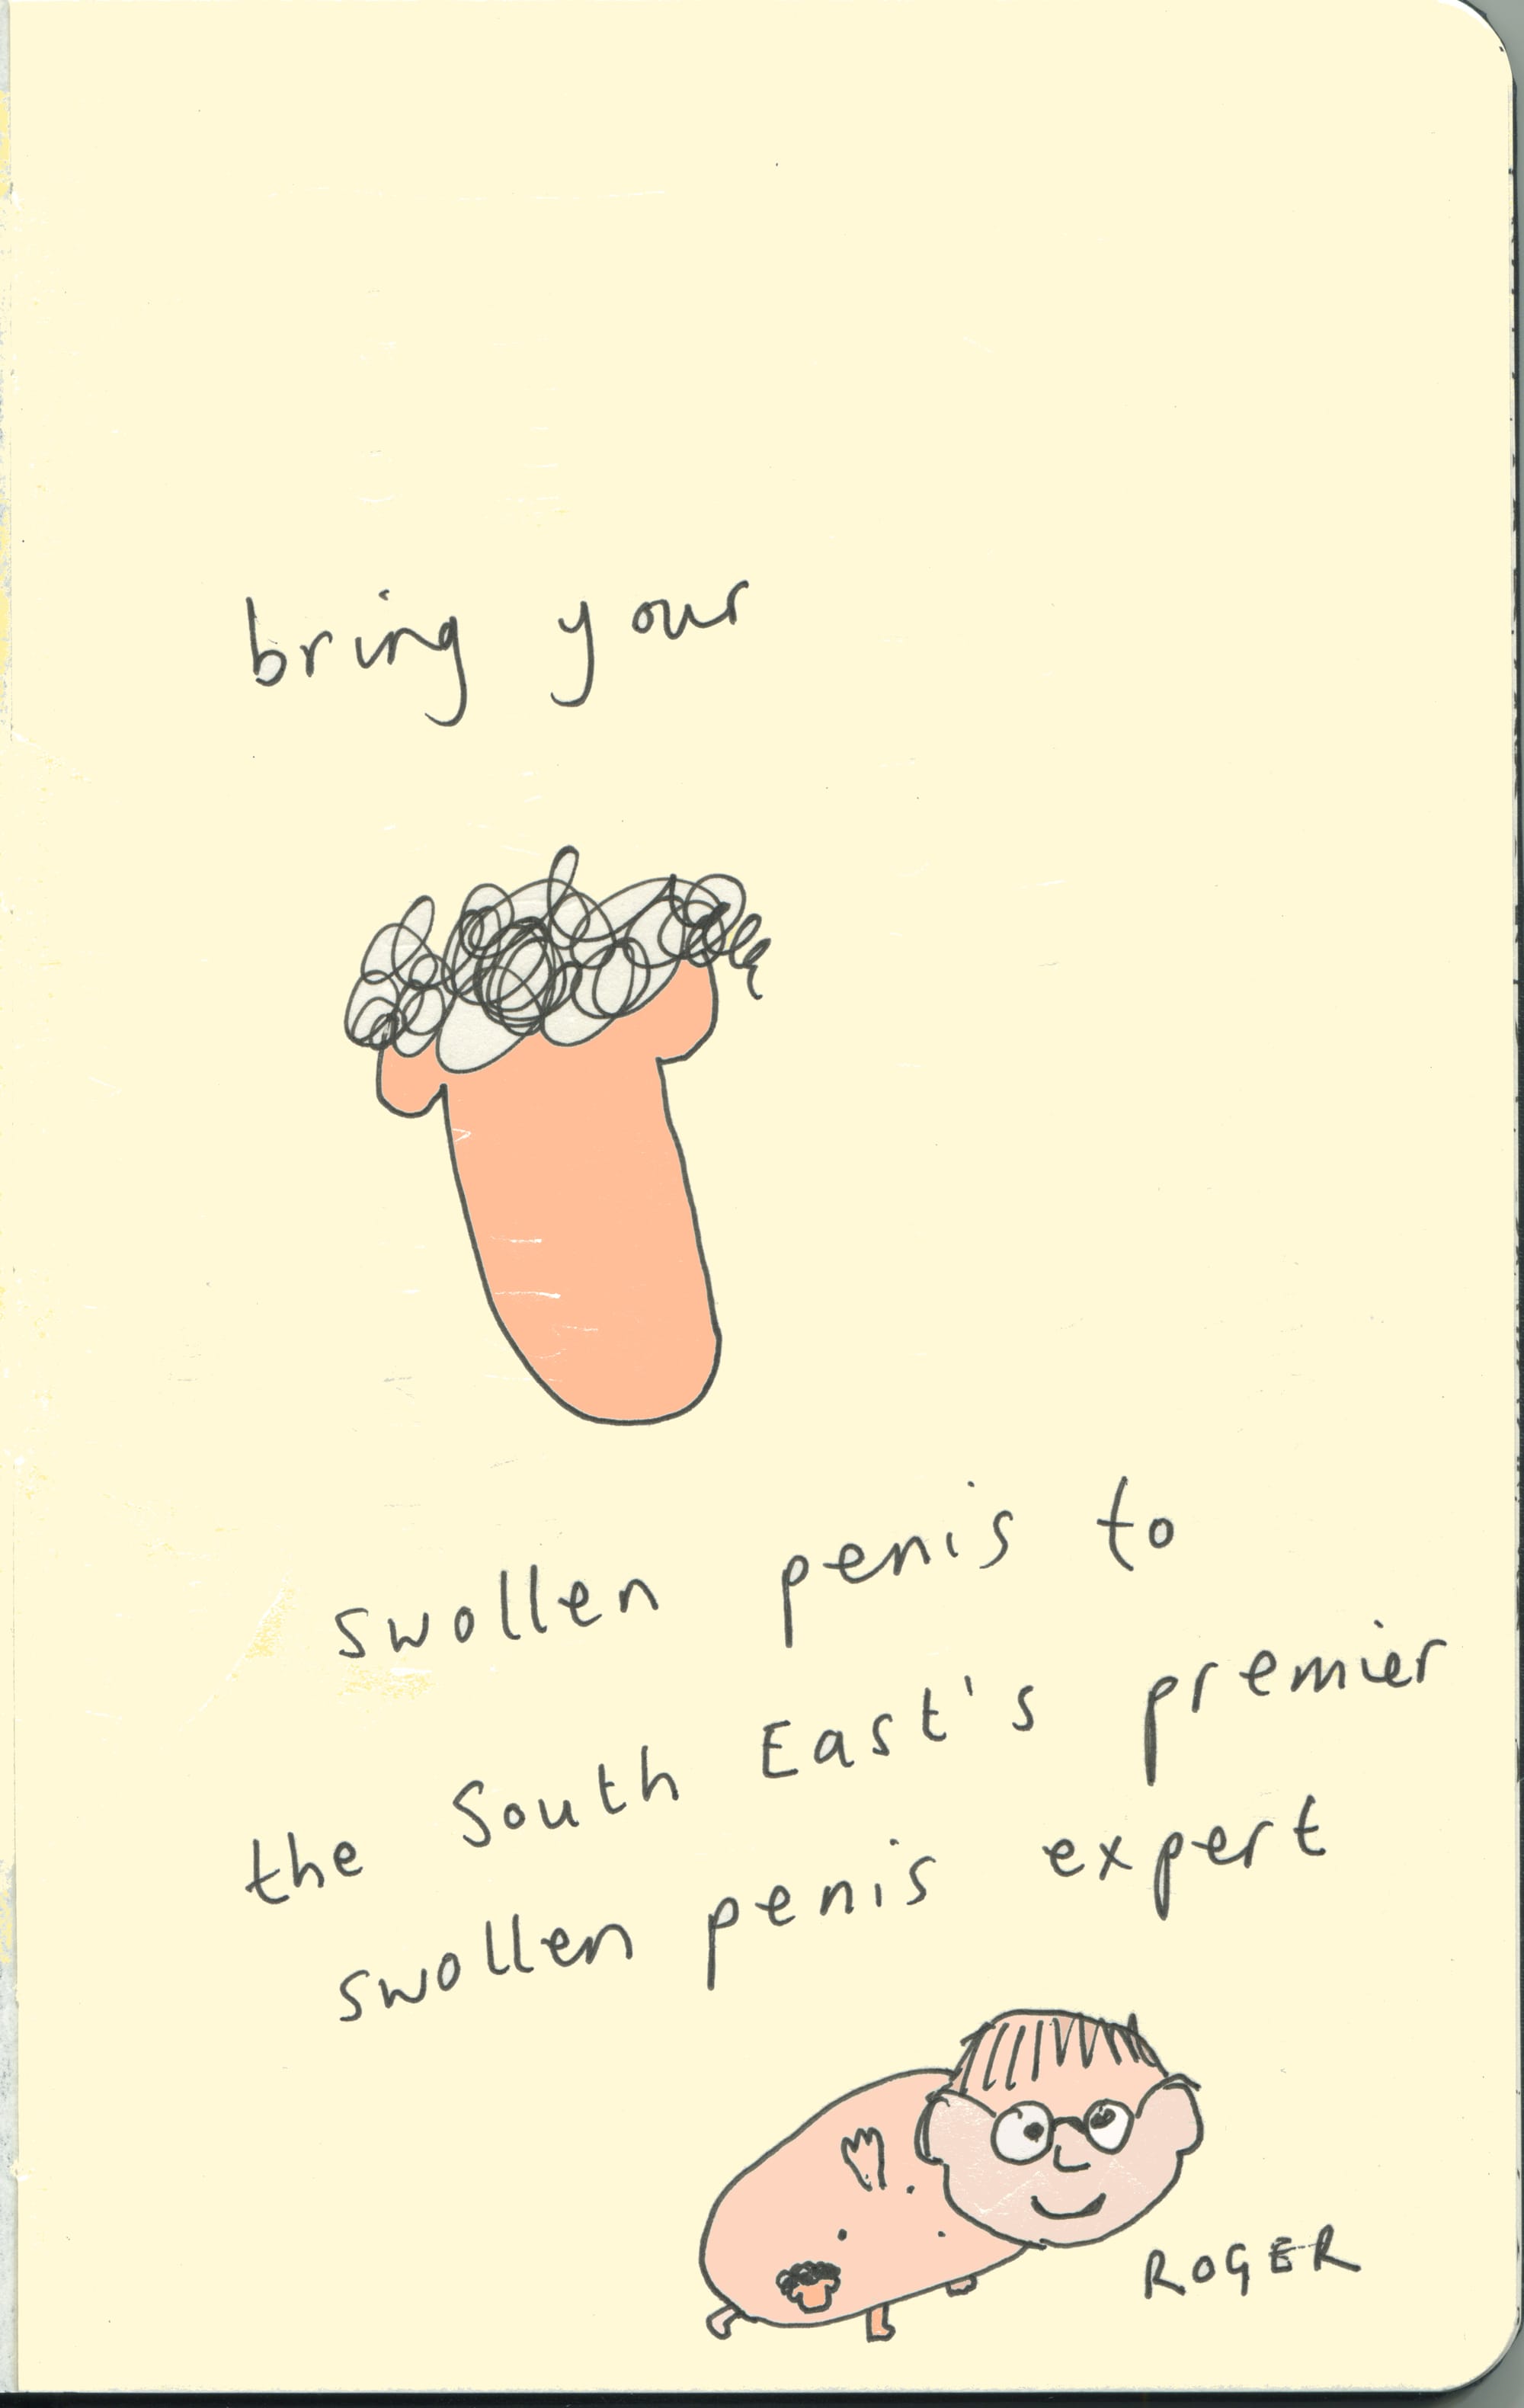 bring your
swollen penis to
the South East's premier
swollen penis expert
ROGER